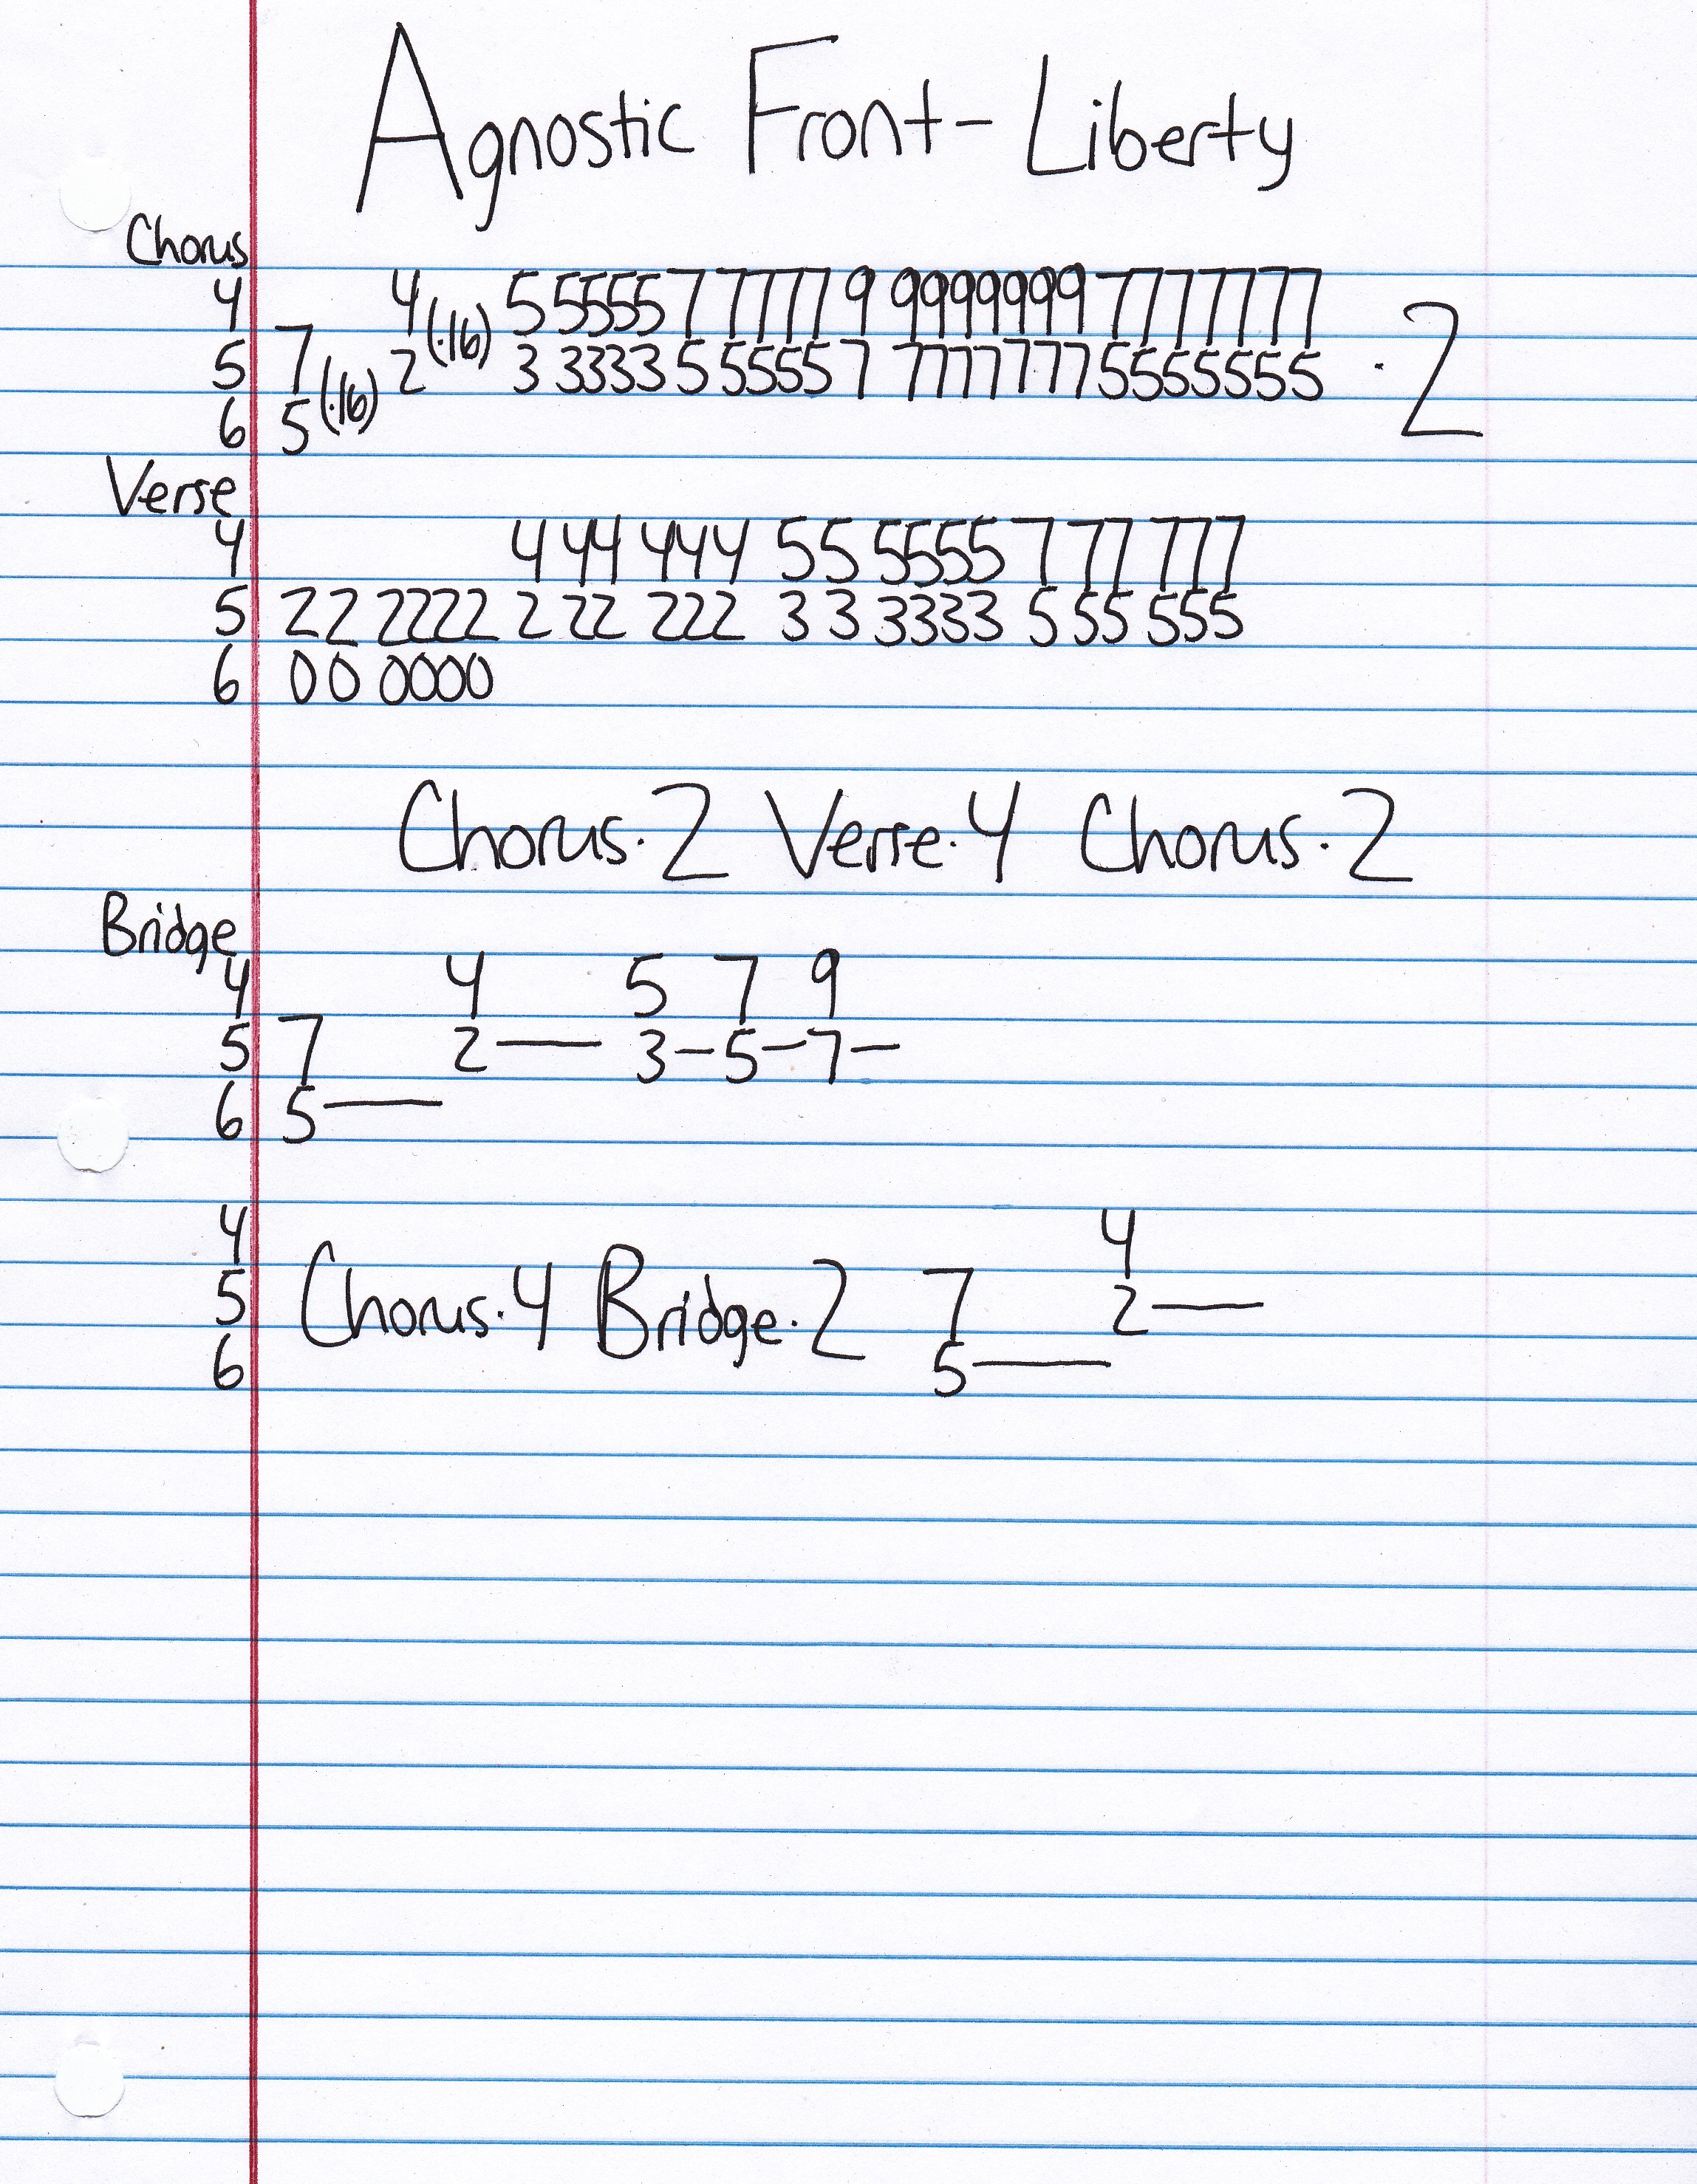 Agnostic Front- Liberty
Chorus
4 4 5 5555 7 7777 9 9999999 7777777
5 7 2 (·16) 3 3333 5 5555 7 7777777 5555555 · 2
6 5 (·16)
Verse
4 4 44 444 55 5555 7 77 777
5 22 2222 2 22 222 3 3 3333 5 55 555
6 00 0000
Chorus·2 Verse·4 Chorus·2
Bridge
4 4 5 7 9
5 7 2— 3-5-7-
6 5—
4 4
5 Chorus·4 Bridge·2 7 2—
6 5—